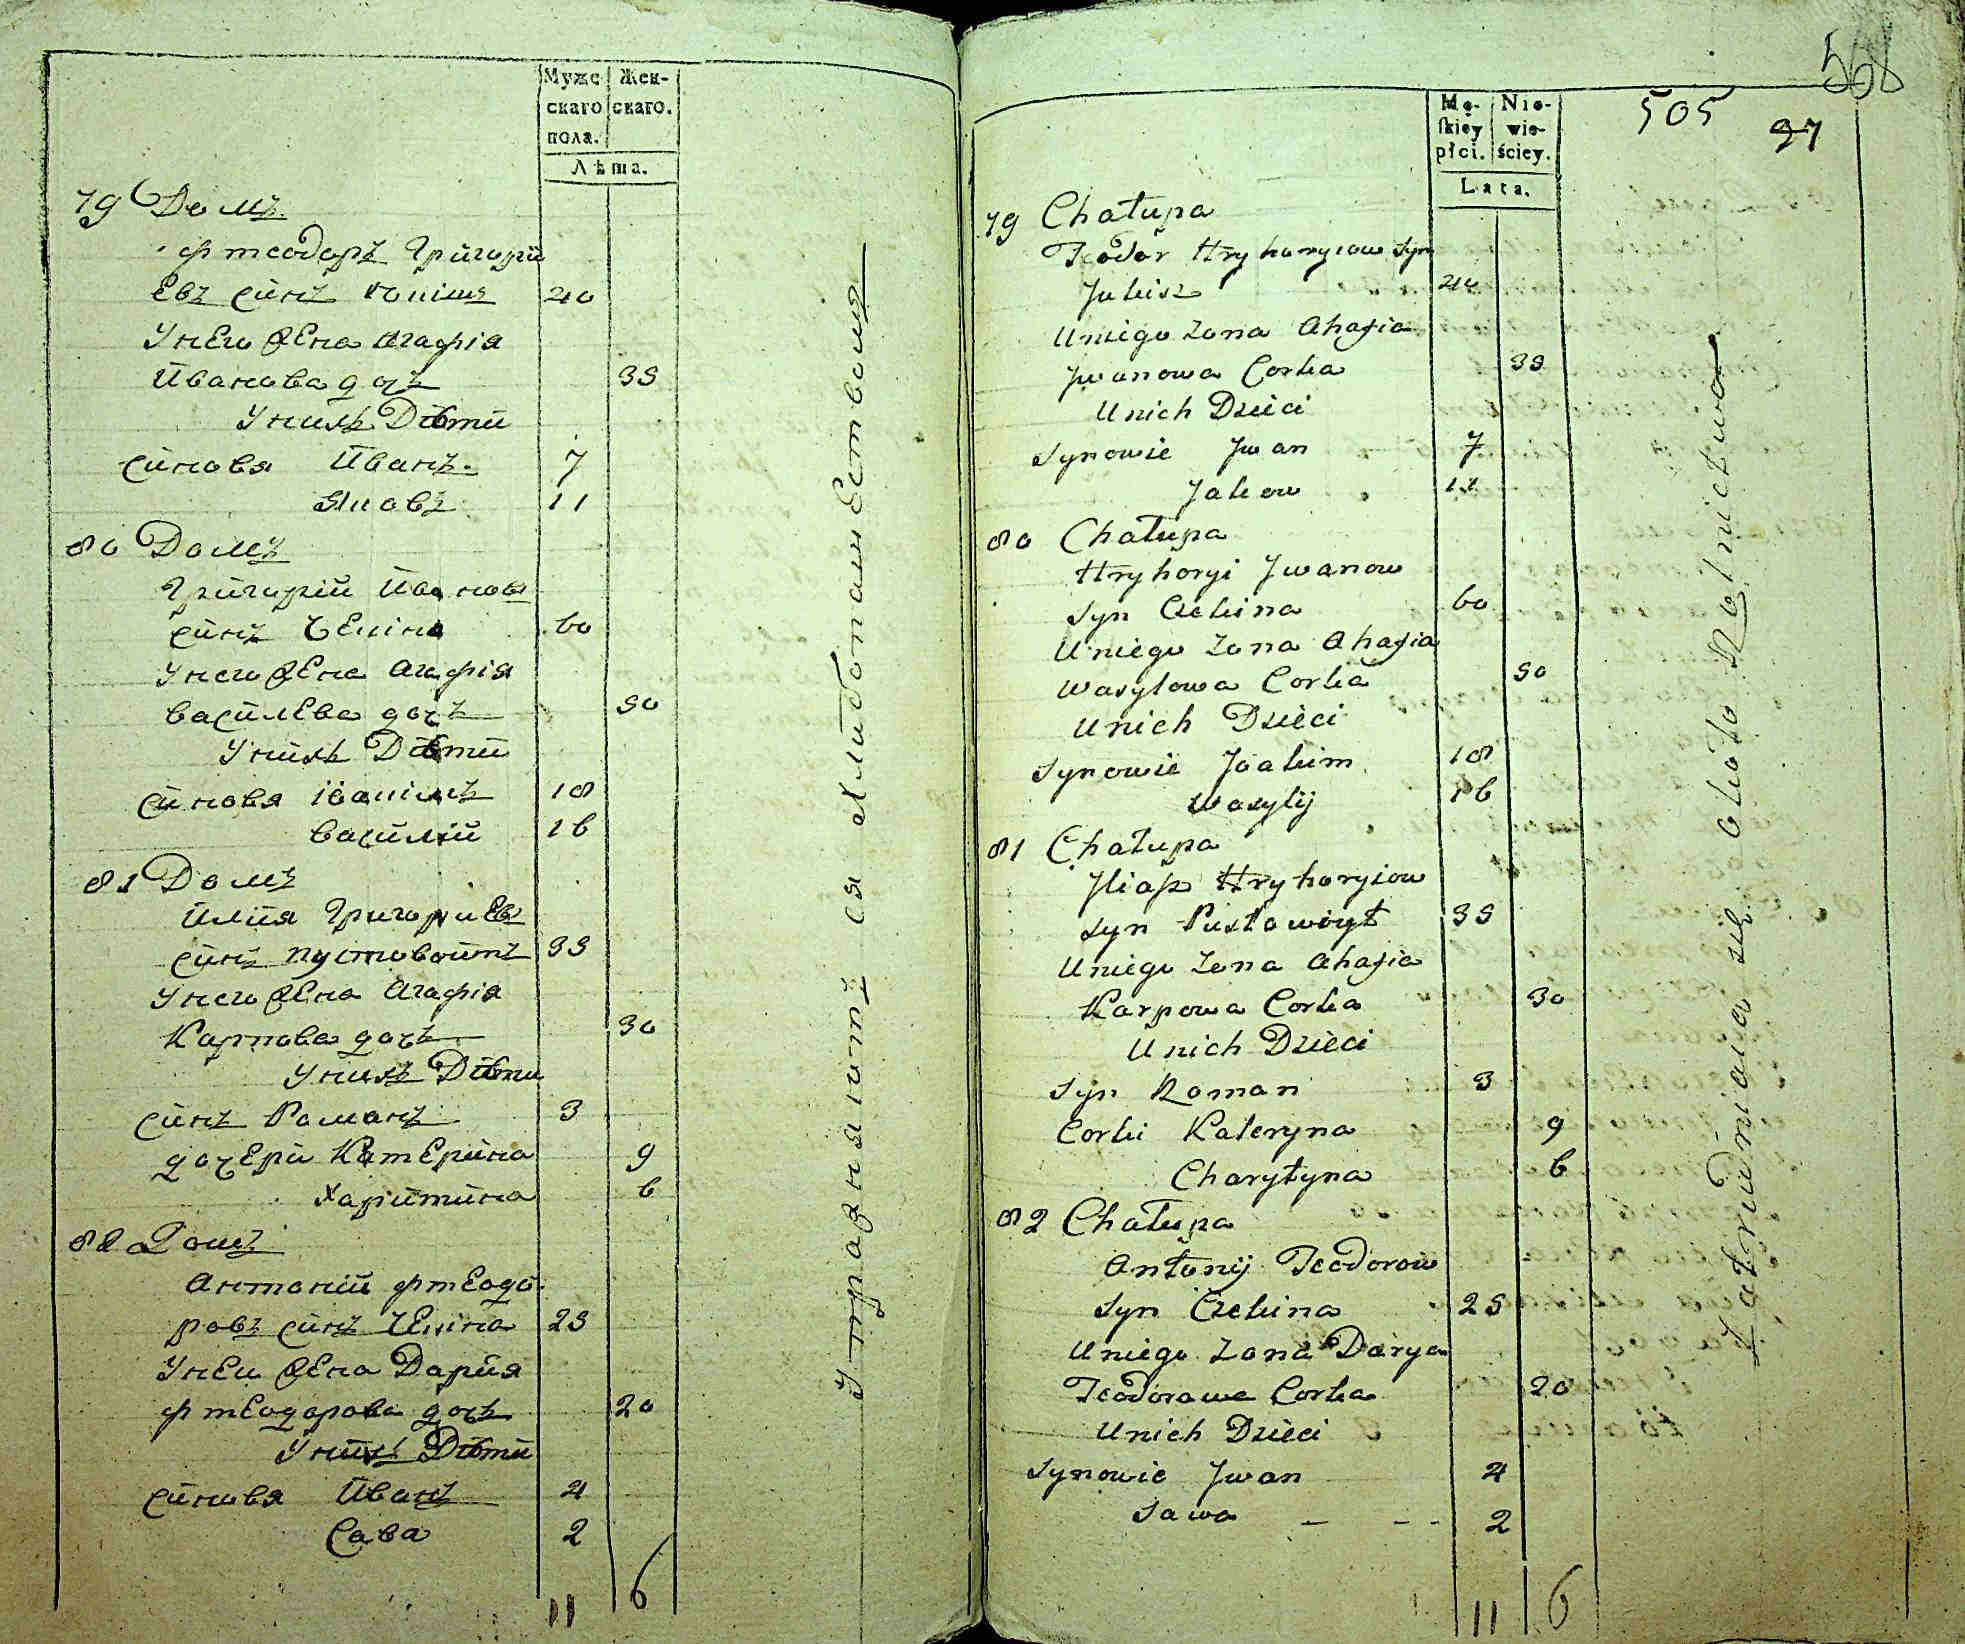 Муже
скаго
пола.
Жен-
скаго.
Лѣта.
79 Домъ
Фтеодоръ Григорїи
Евъ синъ Юкишъ 40
Унего жена Агафїя
Иванова дочъ 35
Унихъ Дѣти
Синовя Иванъ. 7
Яковъ 11
80 Домъ
Григорїй Ивановъ
синъ Чекина 60
Унего жена Агафїя
Василева дочъ 50
Унихъ Дѣти
Синовя Іоакімъ 18
Василій 16
81 Домъ
Илия Григориевъ
синъ Пустовойтъ 35
Унего жена Агафїя
Карпова дочъ 30
Унихъ Дѣти
Синъ Романъ 3
дочери Катерина 9
Харитина 6
82 Домъ
Антоній Фтеодо
ровъ синъ Чекина 25
Унего жена Дария
Фтеодорова дочъ 20
Унихъ Дѣти
Синовя Иванъ 4
Сава 2
11 6
Упражняютъ ся хлибопашествомъ
568
505
97
Mę-
skiey
płci.
Nie-
wie-
ściey.
Lata.
79 Chałupa
Teodor Hryhoryiow Syn
Jukisz 40
Uniego Zona Ahafia
Jwanowa Corka 35
Unich Dzieci
Synowie Jwan 7
Jakow 11
80 Chałupa
Hryhoryi Jwanow
Syn Czekina 60
Uniego Zona Ahafia
Wasylowa Corka 50
Unich Dzieci
Synowie Joakim 18
Wasylij 16
81 Chałupa
Jliasz Hryhoryiow
Syn Pustowoyt 35
Uniego Zona Ahafia
Karpowa Corka 30
Unich Dzieci
Syn Roman 3
Corki Kateryna 9
Charytyna 6
82 Chałupa
Antonij Teodorow
Syn Czekina 25
Uniego Zona Darya
Teodorowa Corka 20
Unich Dzieci
Synowie Jwan 4
Sawa - - - 2
11 6
Zatrudniaia się około Rolnictwa